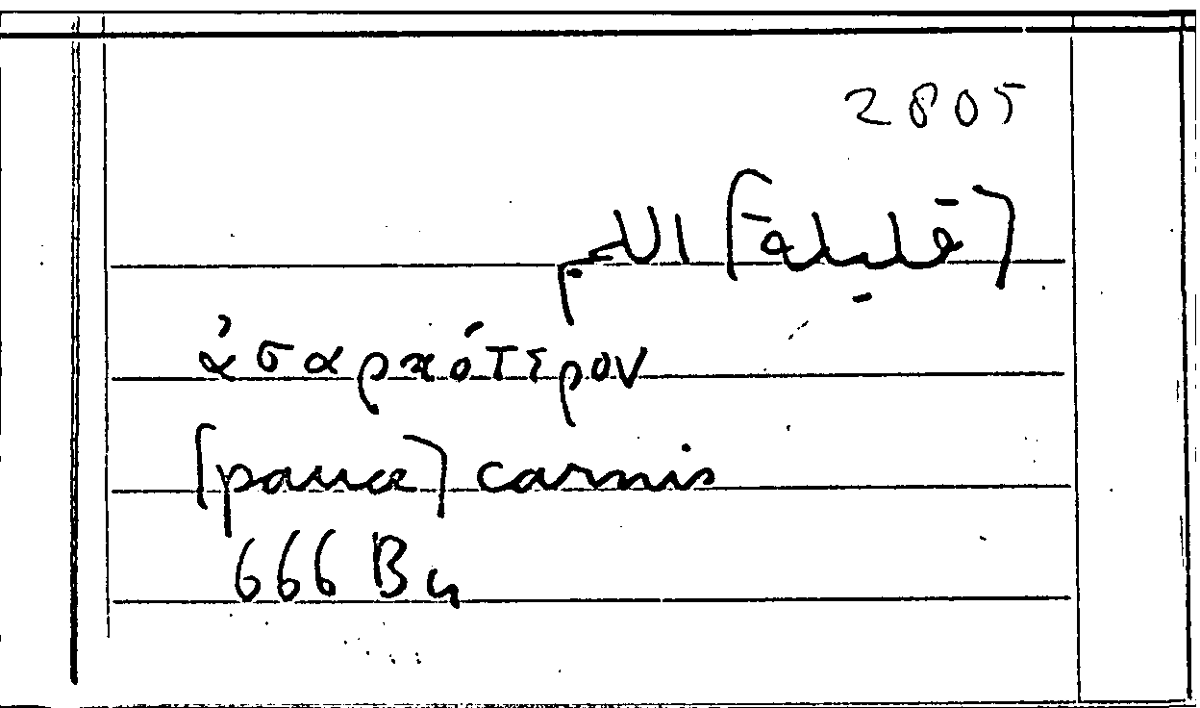 2805
[قليلة] اللحم
ἀσαρκότερον
[pauca] carnis
666 B 4